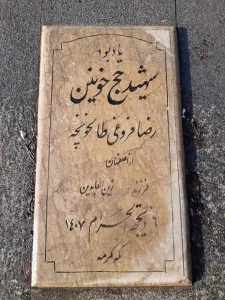 یادبود
شهید حج خونین
رضا فروغی طالخونچه
از اصفهان
فرزند زین العابدین
ذیحجه الحرام ۱۴۰۷
مکه مکرمه